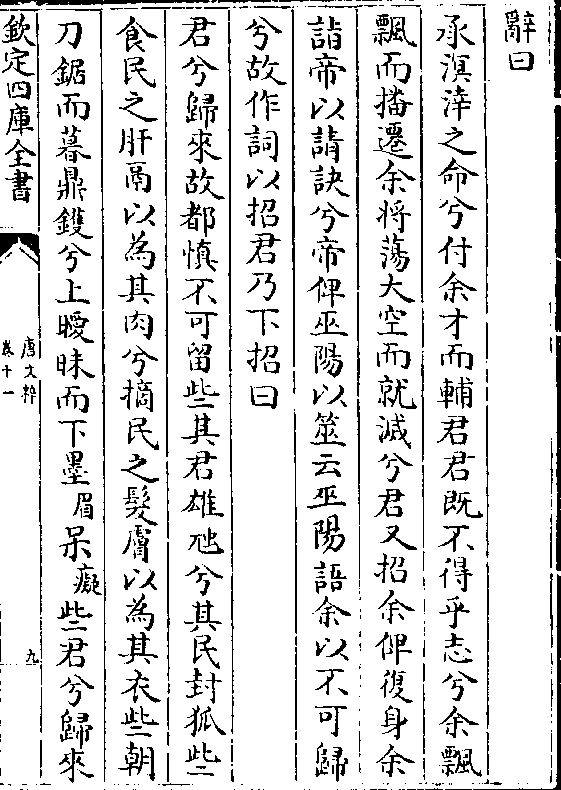 辭曰
承溟涬之命兮付余才而輔君君既不得乎志兮余飄
飄而播遷余將蕩大空而就滅兮君又招余俾復身余
詣帝以請訣兮帝俾巫陽以筮云巫陽語余以不可歸
兮故作詞以招君乃下招曰
君兮歸來故都慎不可留些其君雄虺兮其民封狐些
食民之肝鬲以為其肉兮摘民之髮膚以為其衣些朝
刀鋸而暮鼎鑊兮上曖昧而下墨㞾癡些君兮歸來
欽定四庫全書
唐文粹
卷十一
九